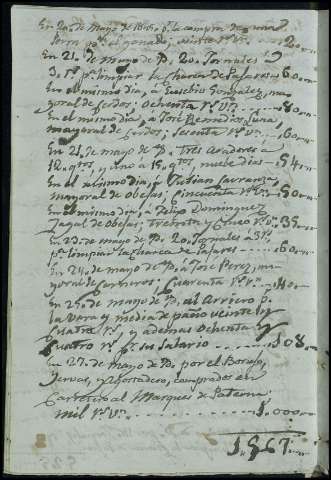 En 20 de mayo de 1816 p.r la compra de una
Perra p.a el ganado, veinte r.s v.n 20
En 21 de mayo de D. 20 Jornales a
3 r.s p.a limpiar la charca de Pajares 60
En el mismo dia, a Eusebio Gonzalez, ma
yoral de Cerdos, Ochenta r.s v.n 80
En el mismo dia, a Jose Bermudez Luna
mayoral de Cerdos, Sesenta r.s v.n 60
En 21 de mayo de D. Tres Aradores a
12 q.tos, y uno a 15 q.tos, nueve dias 54
En el mismo dia, a Julian Carranza,
mayoral de obejas, Cincuenta r.s v.n 50
En el mismo dia, a Felipe Dominguez
Zagal de obejas, Treinta y Cinco r.s v.n 35
En 23 de mayo de D. 20 Jornales a 3 r.s
p.a limpiar la charca de Pajares 60
En 24 de mayo de D. a Jose Perez, ma
yoral de Carneros, Cuarenta r.s v.n 40
En 25 de mayo de D. al Arriero p.r
la Vara y media de paño veinte y
Cuatro r.s, y ademas Ochenta y
Cuatro r.s p.r su salario 108
En 27 de mayo de D. por el
Yervas, comprados en
al Marques de
mil r.s v.n 1.000
1567